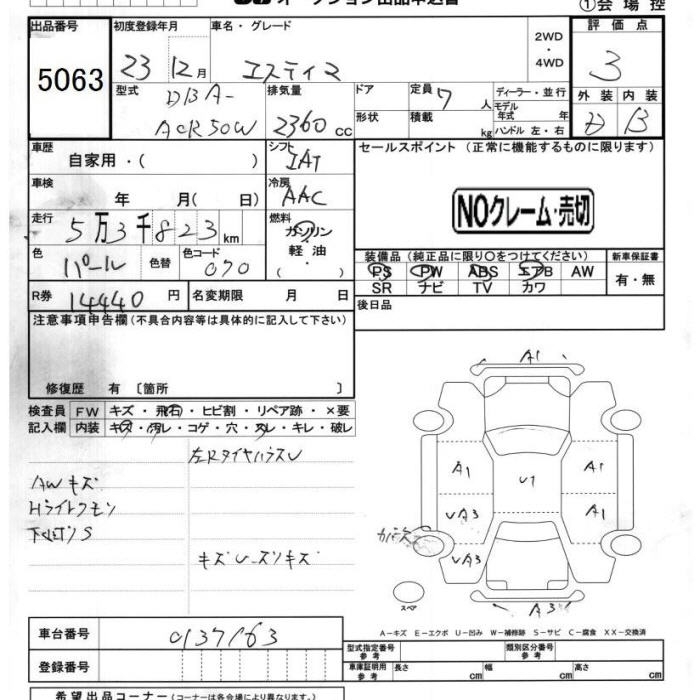 オークション出品申込書
①会場控
出品番号
5063
初度登録年月
23 12月
車名・グレード
エスティマ
2WD
・
4WD
評価点
3
型式
DBA-
ACR50W
排気量
2360 cc
ドア
定員 7 人
ディーラー・並行
モデル
年式 年
形状
積載 kg
ハンドル 左・右
外装 内装
D B
車歴
自家用・( )
シフト
IAT
セールスポイント (正常に機能するものに限ります)
NOクレーム・売切
車検
年 月( 日)
冷房
AAC
走行
5万3千823km
燃料
ガソリン
軽油
・( )
色
パール
色替
色コード
070
装備品(純正品に限り○をつけてください)
PS PW ABS エアB AW
SR ナビ TV カワ
新車保証書
有・無
R券
14440円
名変期限 月 日
後日品
注意事項申告欄(不具合内容等は具体的に記入して下さい)
修復歴 有 〔箇所 〕
検査員
記入欄
FW キズ・飛石・ヒビ割・リペア跡・×要
内装 キズ・汚レ・コゲ・穴・スレ・キレ・破レ
左RタイヤハウスU
AWキズ
Hライトクモリ
キズU-ズリキズ
A1
A1
A1
U1
UA3
A1
UA3
A3
スペア
A-キズ E-エクボ U-凹み W-補修跡 S-サビ C-腐食 XX-交換済
車台番号
0137163
登録番号
型式指定番号
参考
類別区分番号
参考
車庫証明用
参考
長さ cm 幅 cm 高さ cm
希望出品コーナー(コーナーは各会場により異なります)